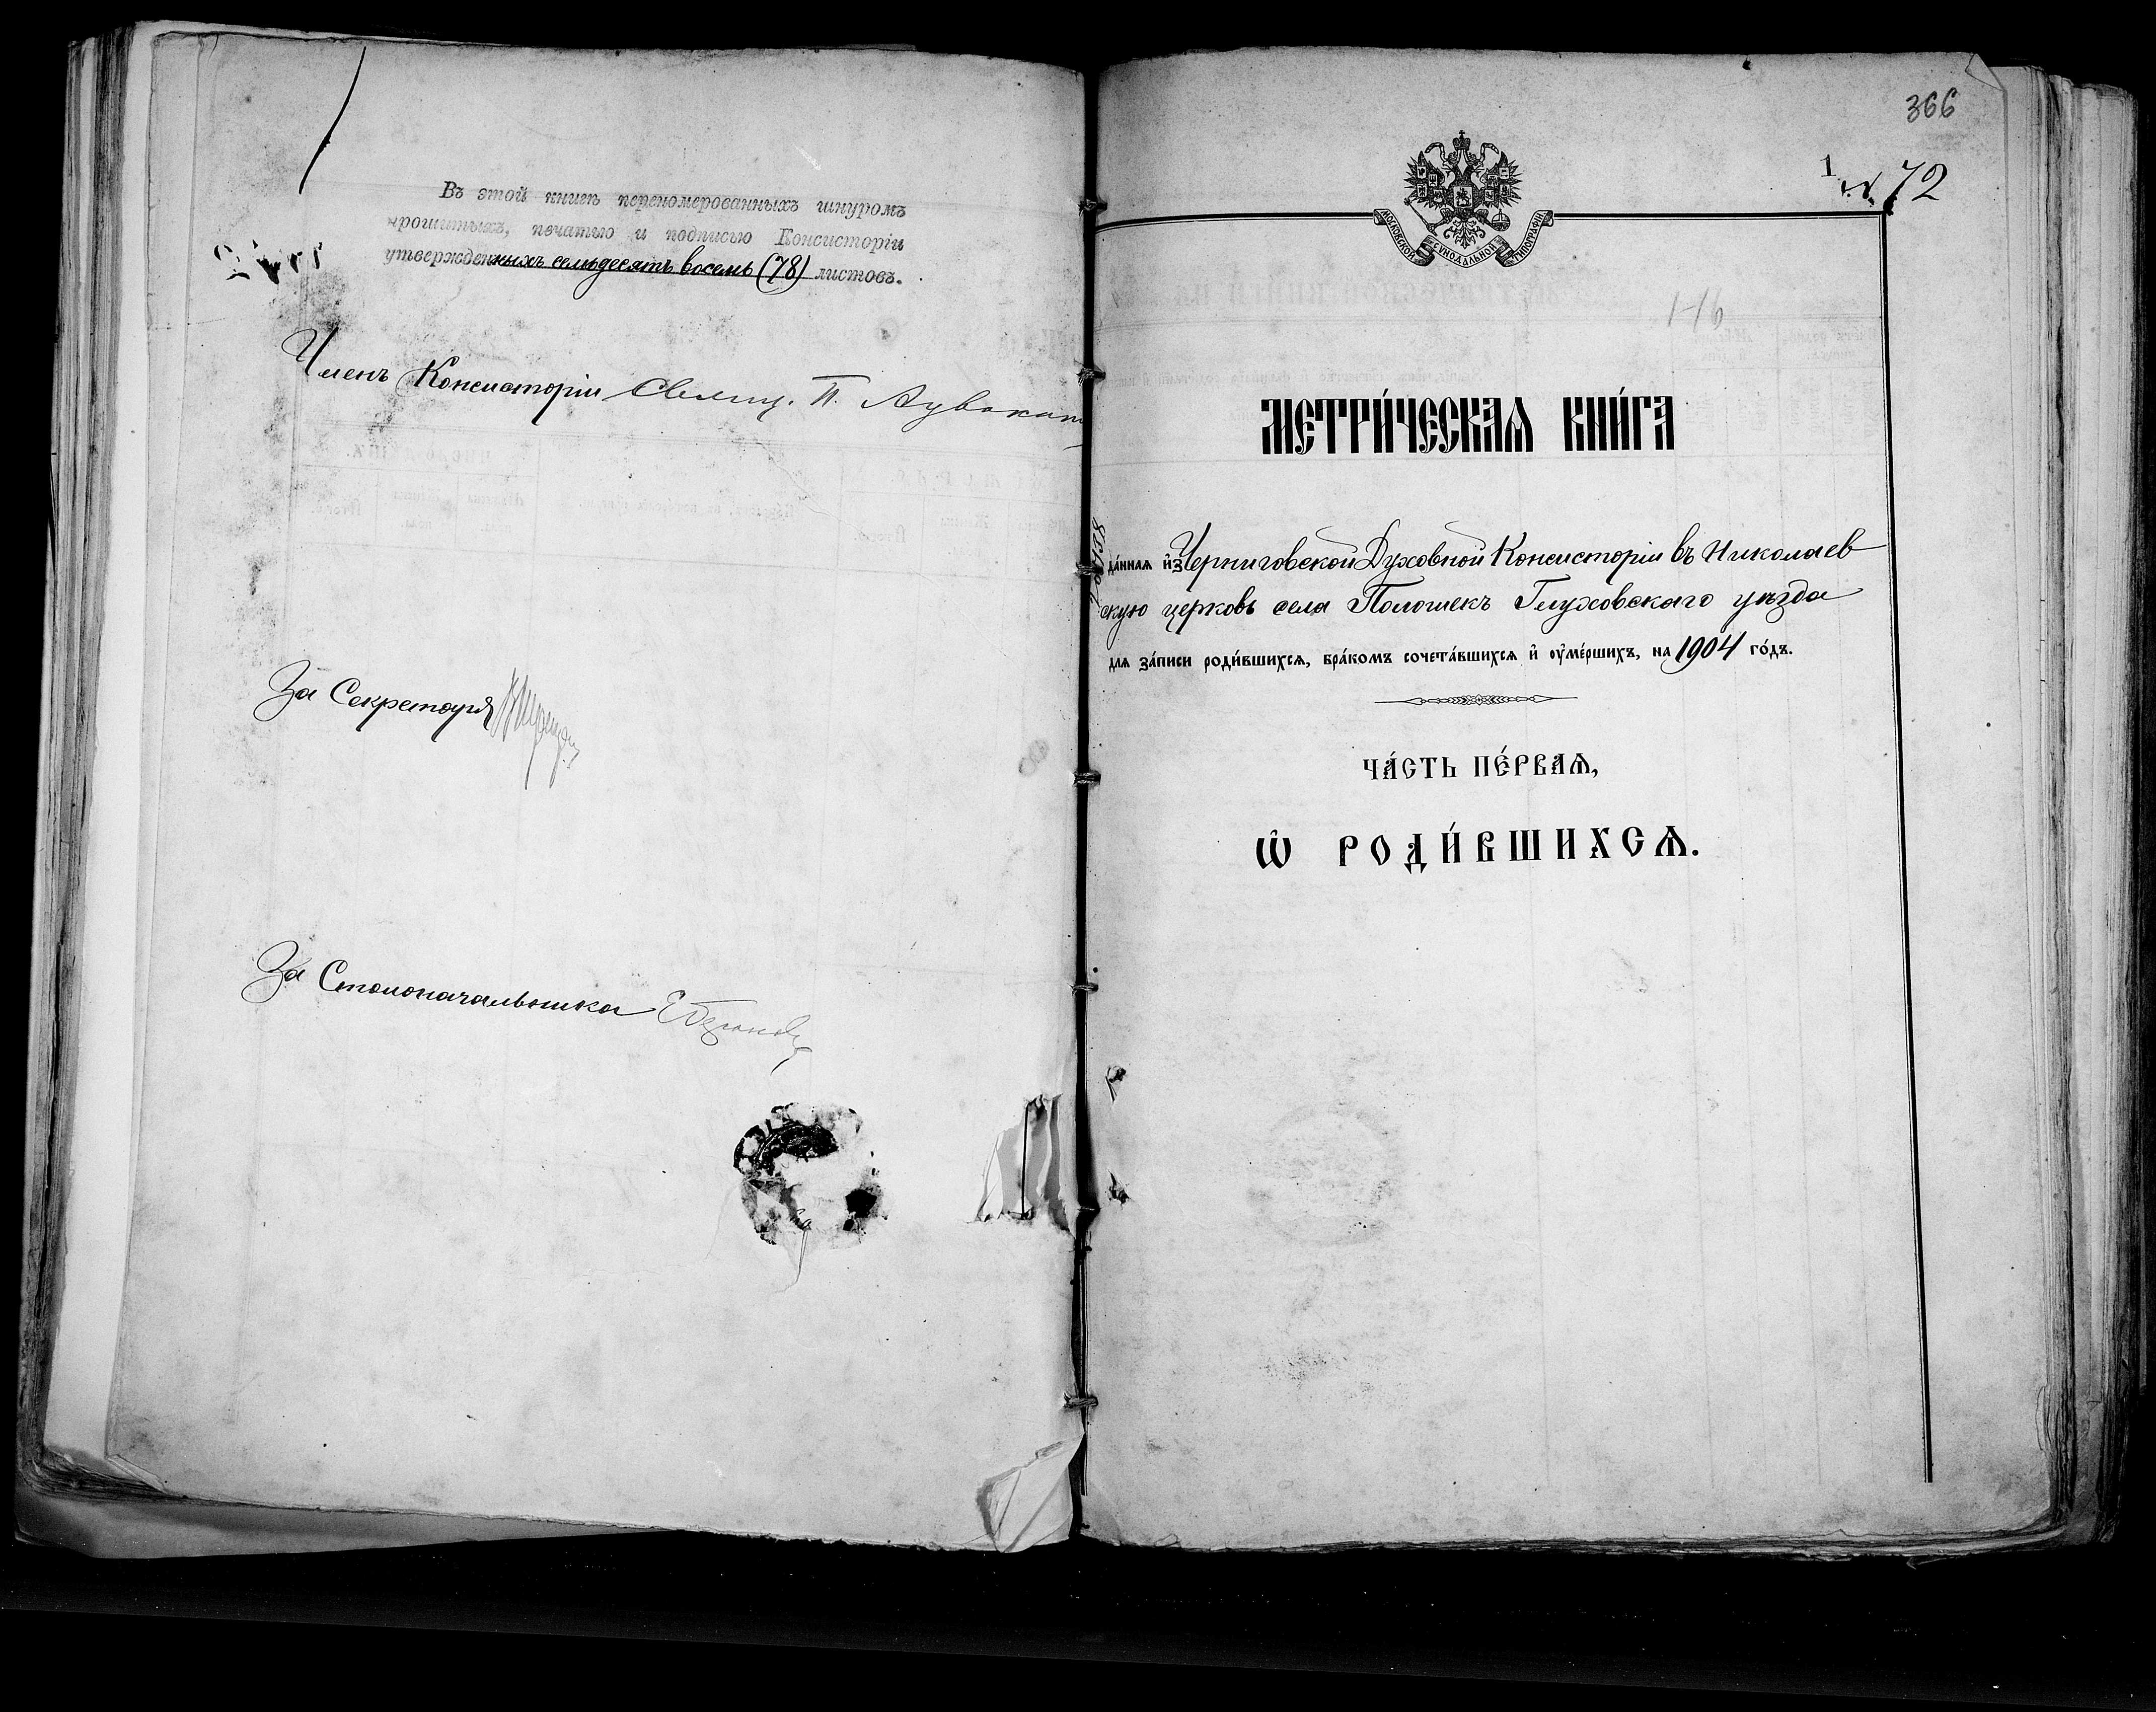 Въ этой книгѣ переномерованныхъ шнуромъ
прошитыхъ, печатью и подписью Консисторіи
утвержденныхъ семьдесятъ восемь (78) листовъ.
Членъ Консисторіи Свящ. П.
За Секретаря
За Столоначальника
366
1
72
МОСКОВСКОЙ СѴНОДАЛЬНОЙ ТИПОГРАФІИ
1-16
МЕТРИ́ЧЕСКАѦ КНИ́ГА
да́нная и҆з Черниговской Духовной Консисторіи въ Николаев
скую церковь села Полошекъ Глуховскаго уѣзда
для за́писи роди́вшихся, бра́комъ сочета́вшихся и҆ оу҆ме́ршихъ, на 1904 го́дъ.
ЧА́СТЬ ПЕ́РВАѦ,
Ѡ҆ РОДИ́ВШИХСѦ.